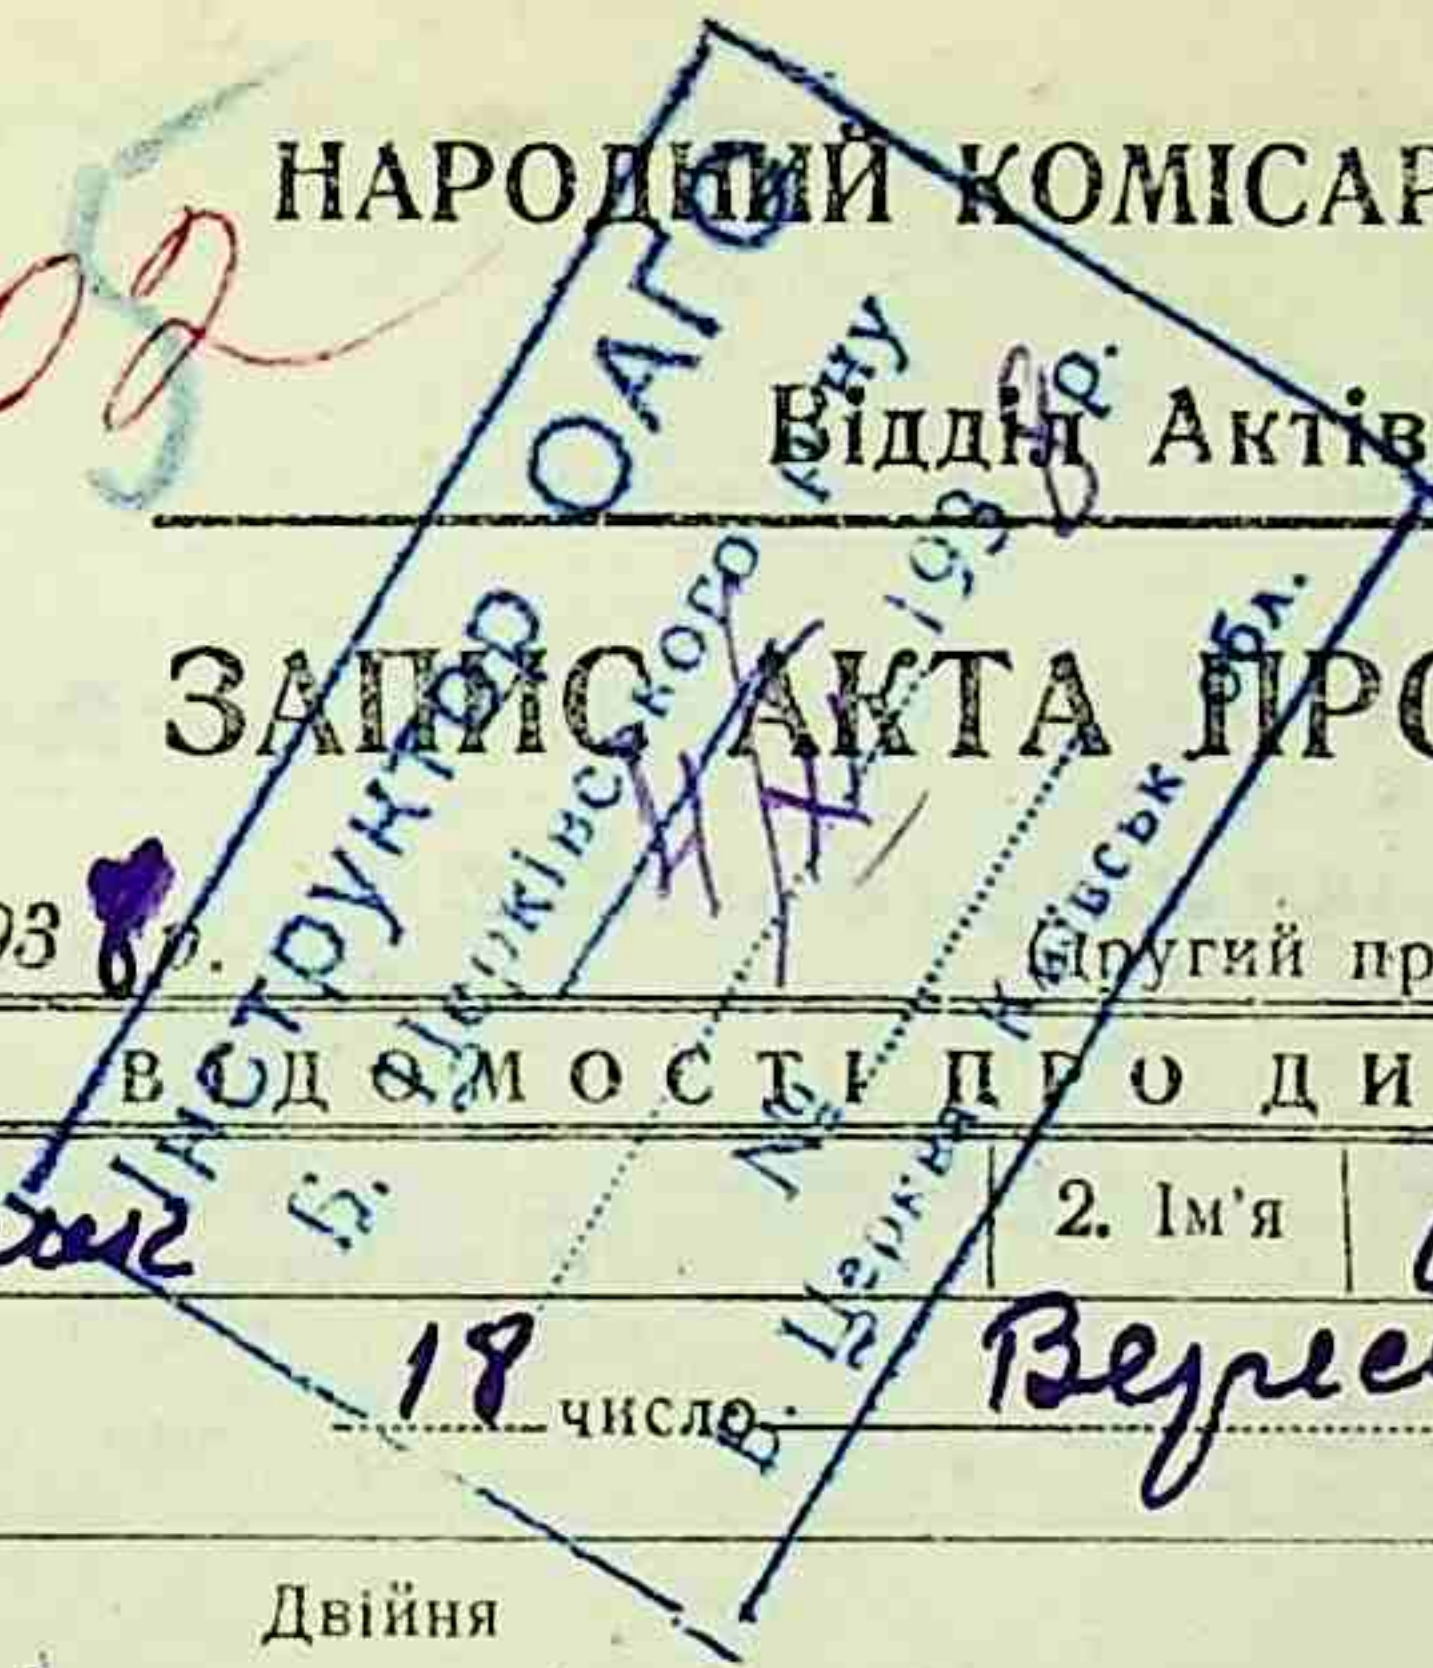 02
НАРОДНИЙ КОМІСАР
Відділ Актів
ЗАПИС АКТА ПРО
93 8 р.
(Другий пр
ВІДОМОСТІ ПРО ДИ
2. Ім'я
18 число Вересн
Двійня
Інструктор ОАГС
Б. Церківського р-ну
193 8 р.
№
Б. Церква, Київськ обл.